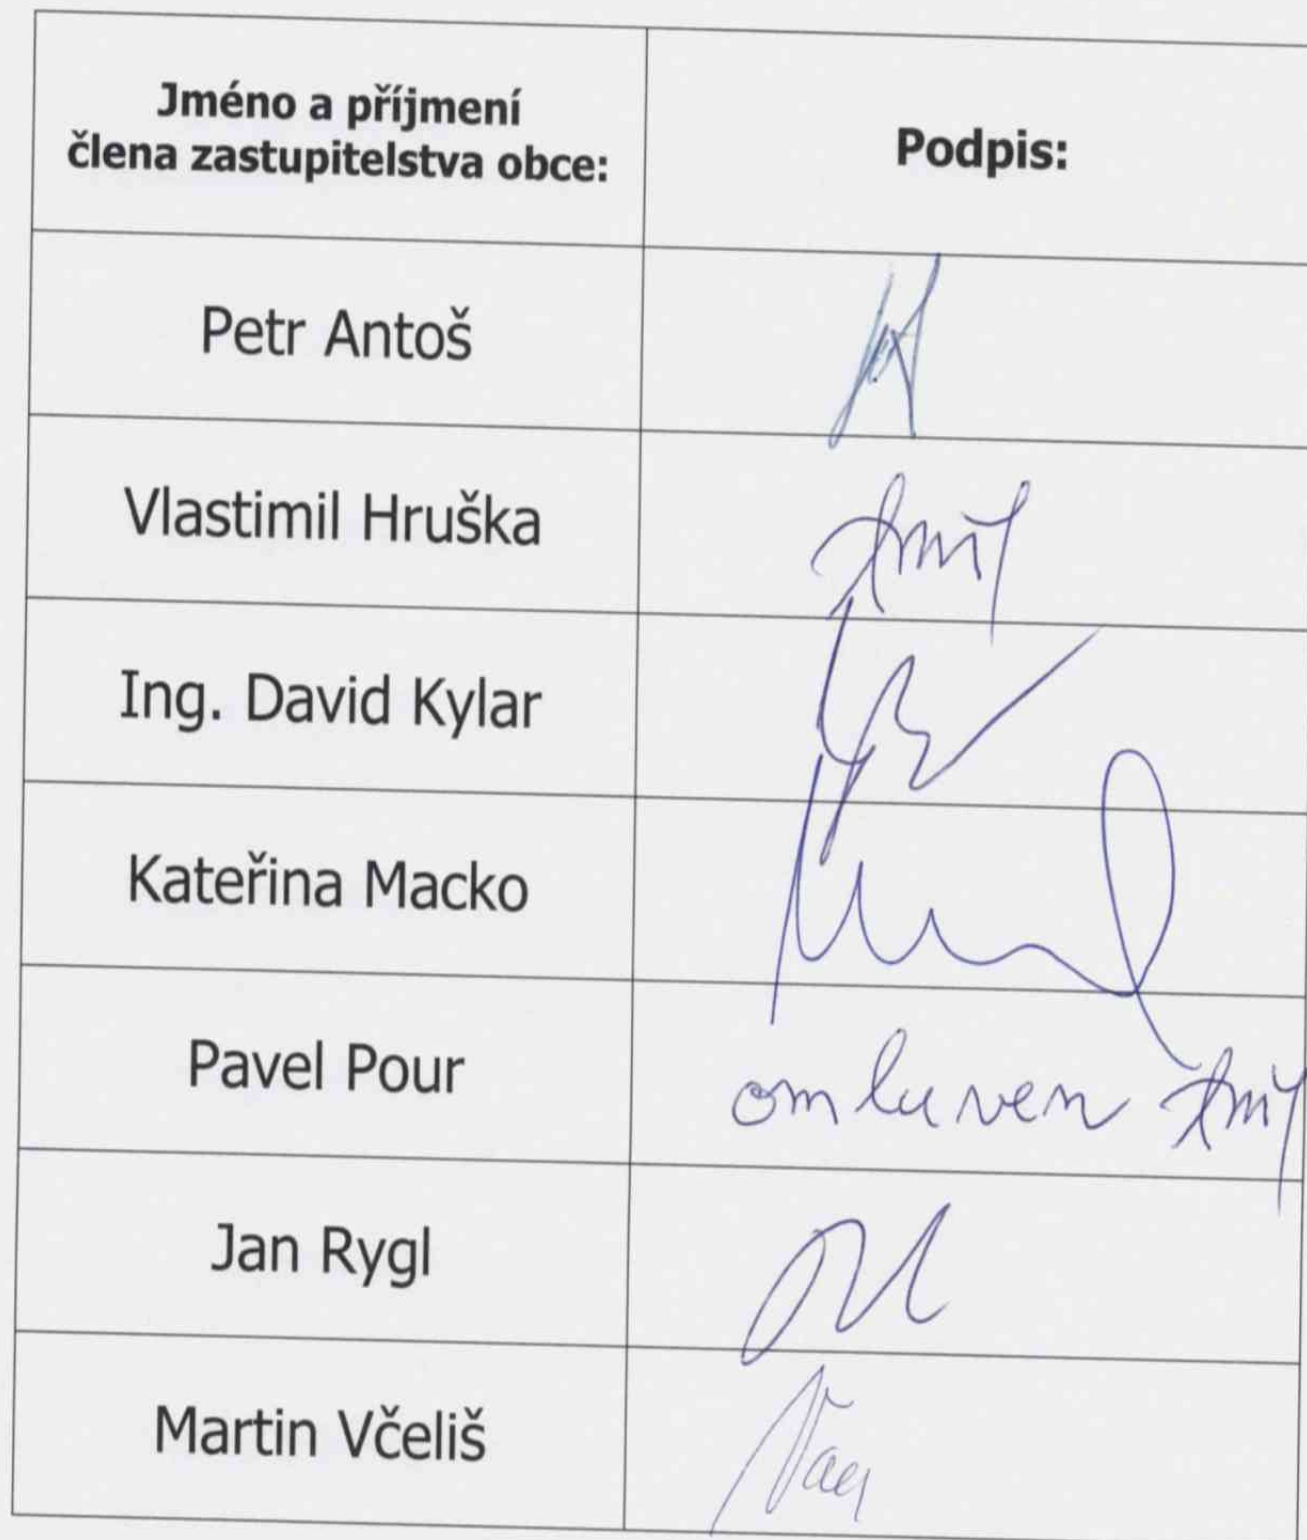 Jméno a příjmení
člena zastupitelstva obce:
Podpis:
Petr Antoš
Vlastimil Hruška
Ing. David Kylar
Kateřina Macko
Pavel Pour
omluven
Jan Rygl
Martin Včeliš